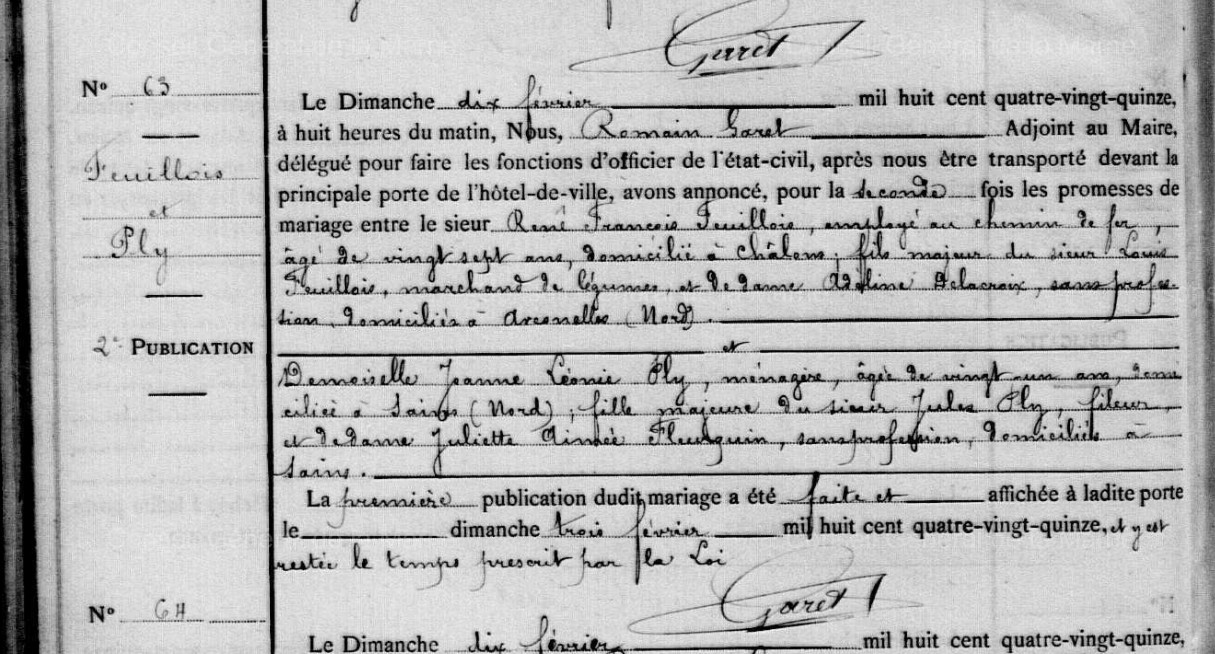 Garet
Nº 63
Feuillois
et
Ply
2e PUBLICATION
Le Dimanche dix février mil huit cent quatre-vingt-quinze,
à huit heures du matin, Nous, Romain Garet Adjoint au Maire,
délégué pour faire les fonctions d'officier de l'état-civil, après nous être transporté devant la
principale porte de l'hôtel-de-ville, avons annoncé, pour la seconde fois les promesses de
mariage entre le sieur René François Feuillois, employé au chemin de fer,
âgé de vingt sept ans, domicilié à Châlons, fils majeur du sieur Louis
Feuillois, marchand de légumes, et de dame Adeline Delacroix, sans profes-
sion, domiciliés à (Nord).
et
Demoiselle Jeanne Léonie Ply, ménagère, âgée de vingt un ans, domi
ciliée à Sains (Nord), fille majeure du sieur Jules Ply, fileur,
et de dame Juliette Aimée Fleurquin, sans profession, domiciliés à
Sains.
La première publication dudit mariage a été faite et affichée à ladite porte
le dimanche trois février mil huit cent quatre-vingt-quinze, et y est
restée le temps prescrit par la Loi
Garet
Nº 64
Le Dimanche dix février mil huit cent quatre-vingt-quinze,